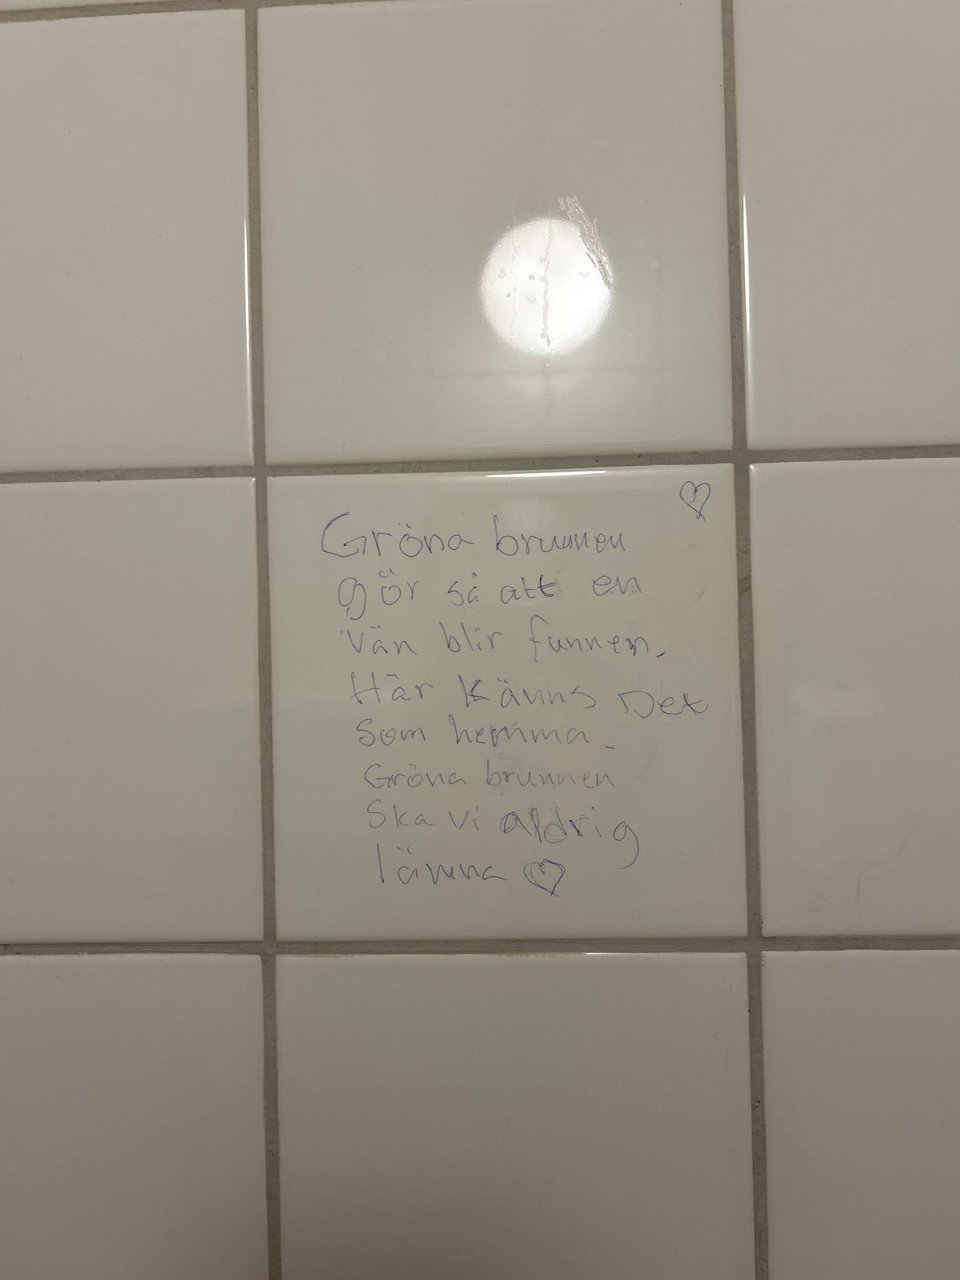 Gröna brunnen
gör så att en
vän blir funnen.
Här känns Det
som hemma.
Gröna brunnen
Ska vi aldrig
lämna